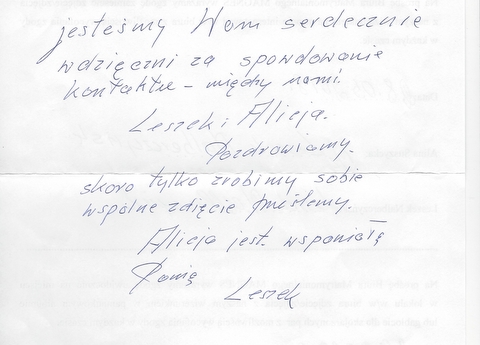 jesteśmy Wam serdecznie
wdzięczni za spowdowanie
kontaktu - między nami.
Leszek i Alicja.
Pozdrawiamy.
skoro tylko zrobimy sobie
wspólne zdięcie prześlemy.
Alicja jest wspaniałą
Panią
Leszek